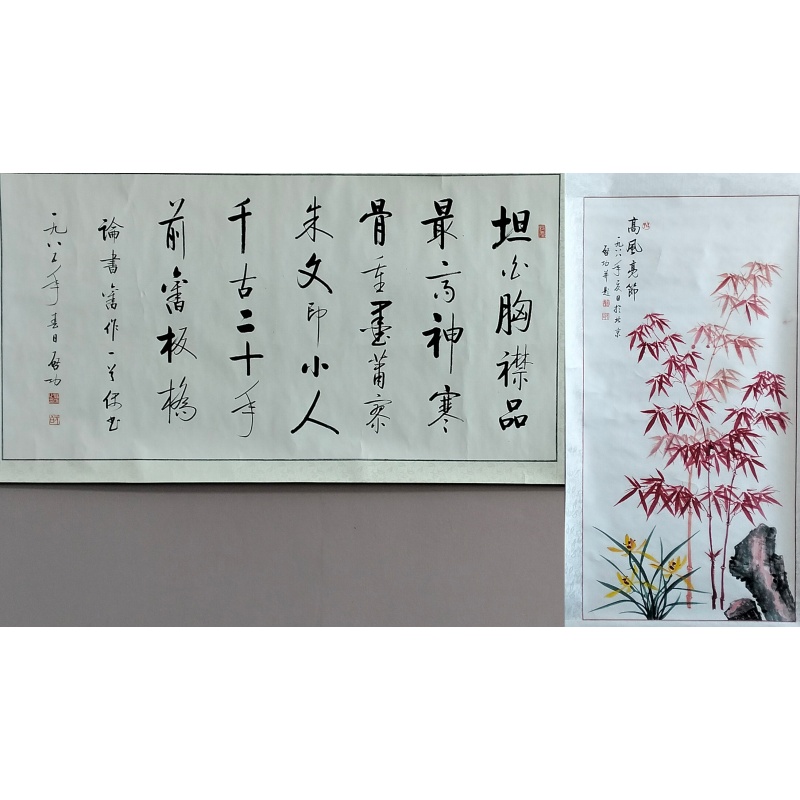 坦白胸襟品
最高神寒
骨重墨蕭寥
朱文印小人
千古二十年
前舊板橋
論書舊作一首
一九八五年春日啓功
高風亮節
一九八八年夏日於北京
啓功并題